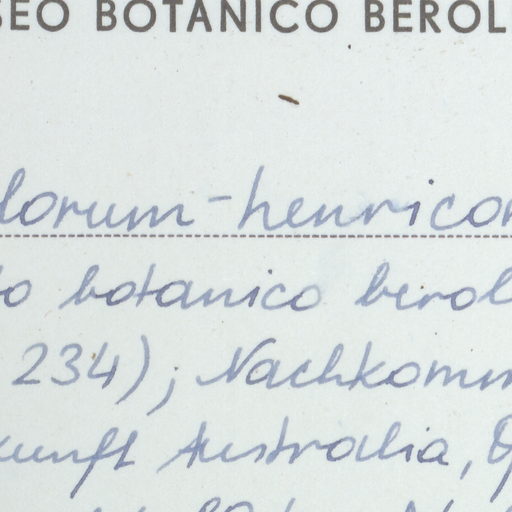 SEO BOTANICO BEROL
lorum-henricor
to botanico berol
234); Nachkomm
kunft Australia, Q